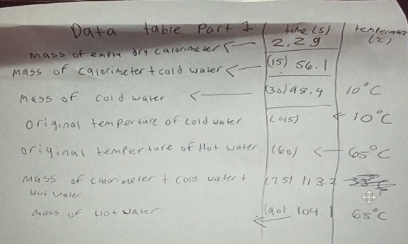 Data table Part 1 time (s) temperture (c)
mass of empty dry calorimeter ← 2.29
mass of calorimeter + cold water ← (15) 56.1
mass of cold water ← (30) 98.4 10°C
original temperture of cold water (45) ← 10°C
original temperture of Hot water (60) ← 65°C
mass of calorimeter + cold water + (75) 113.2
Hot water
mass of Hot water ← (90) 104.1 65°C